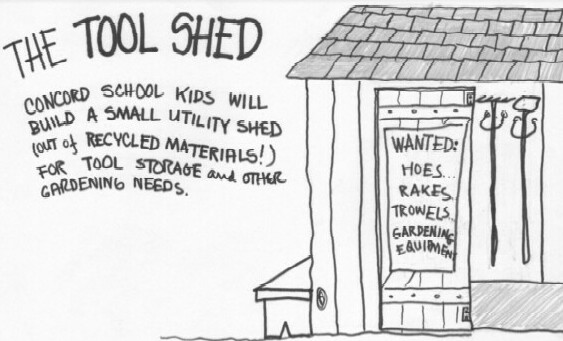 THE TOOL SHED
CONCORD SCHOOL KIDS WILL
BUILD A SMALL UTILITY SHED
(OUT of RECYCLED MATERIALS!)
FOR TOOL STORAGE and OTHER
GARDENING NEEDS.
WANTED:
HOES...
RAKES..
TROWELS..
GARDENING
EQUIPMENT